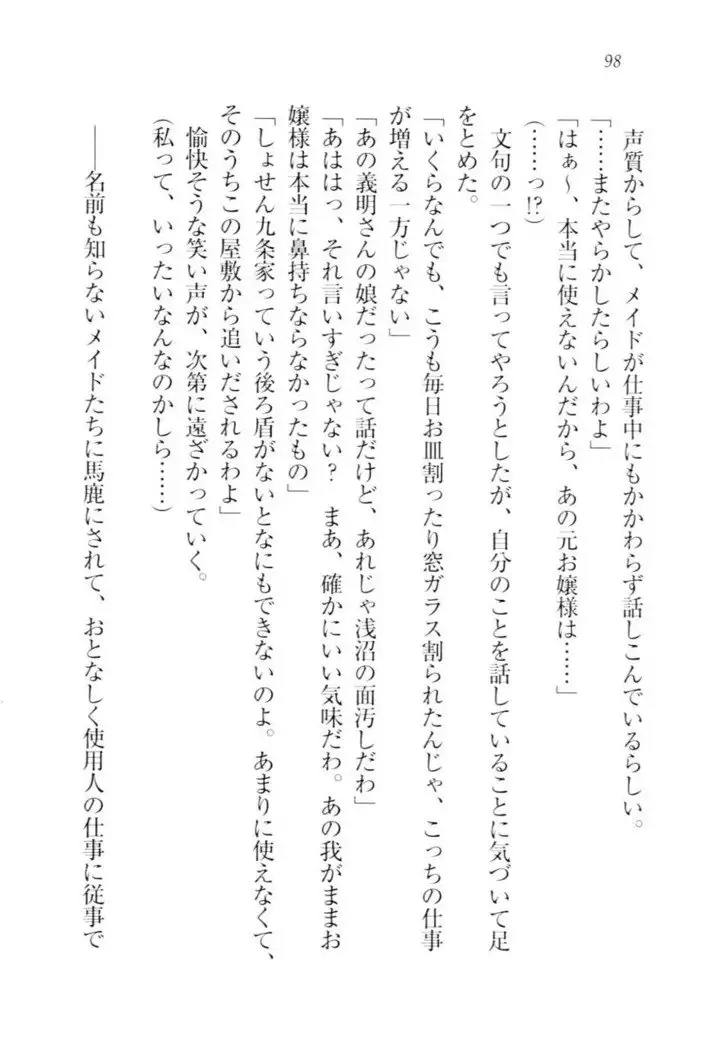 98
声質からして、メイドが仕事中にもかかわらず話しこんでいるらしい。
「……またやらかしたらしいわよ」
「はぁ～、本当に使えないんだから、あの元お嬢様は……」
(……っ!?)
文句の一つでも言ってやろうとしたが、自分のことを話していることに気づいて足
をとめた。
「いくらなんでも、こうも毎日お皿割ったり窓ガラス割られたんじゃ、こっちの仕事
が増える一方じゃない」
「あの義明さんの娘だったって話だけど、あれじゃ浅沼の面汚しだわ」
「あははっ、それ言いすぎじゃない？　まあ、確かにいい気味だわ。あの我がままお
嬢様は本当に鼻持ちならなかったもの」
「しょせん九条家っていう後ろ盾がないとなにもできないのよ。あまりに使えなくて、
そのうちこの屋敷から追いだされるわよ」
愉快そうな笑い声が、次第に遠ざかっていく。
(私って、いったいなんなのかしら……)
――名前も知らないメイドたちに馬鹿にされて、おとなしく使用人の仕事に従事で